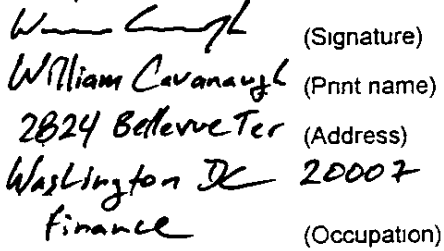 (Signature)
William Cavanaugh (Print name)
2824 Bellevue Ter (Address)
Washington DC 20007
finance (Occupation)